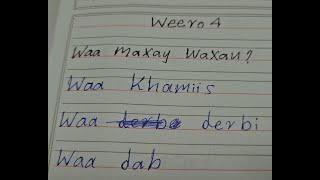 Weero 4
Waa maxay waxan?
Waa Khamiis
Waa derbi
Waa dab